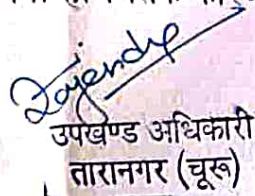 Rajendra
उपखण्ड अधिकारी
तारानगर (चूरू)